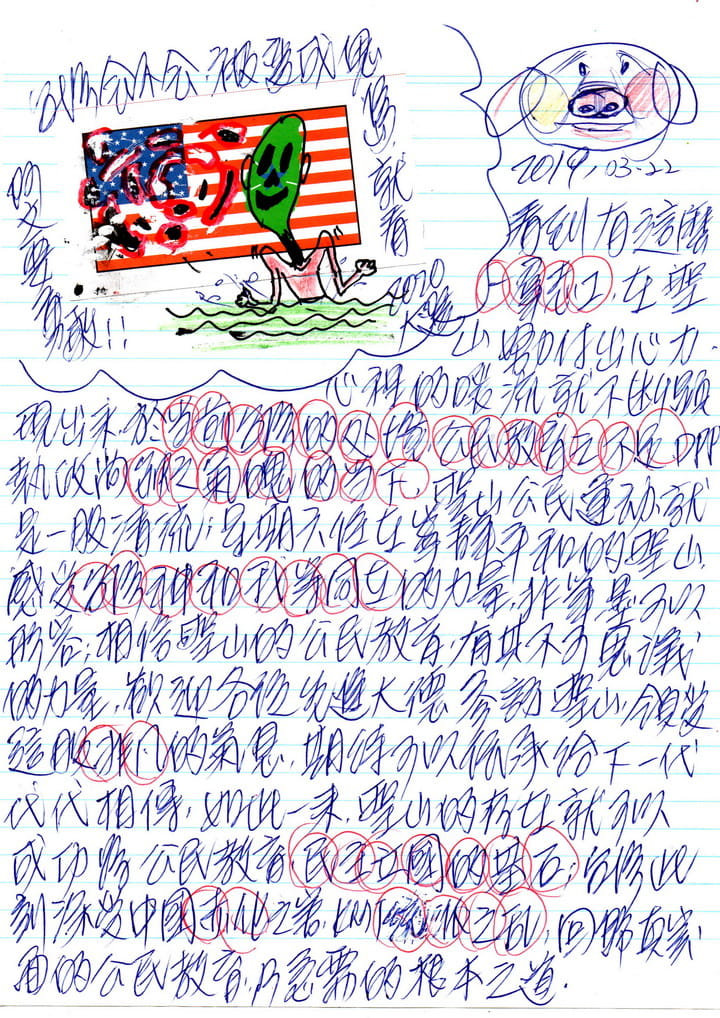 台灣會不會被變成傀
儡,就看
2020
大選
的父要勇敢!!
2019,03-22
看到有這麼
多,在聖
山努力付出心力,
心裡的暖流就不斷頻
現出來,於當前台灣的处境,公民教育之不足DPP
執政尚的當下,聖山公民運動就
是一股清流;星期六位在寧靜平和的聖山
感受台灣神和我等同在的力量,非筆墨可以
形容;相信聖山的公民教育有其不可思議
的力量,歡迎各位先進大德參訪聖山,領受
這股非凡的氣息,期待可以傳承給下一代
代代相傳,如此一來,聖山的存在就可以
成功將公民教育民主立國的基石;台灣此
刻深受中國赤化之害,KMT之亂,回歸真實
面的公民教育,乃急需的根本之道.